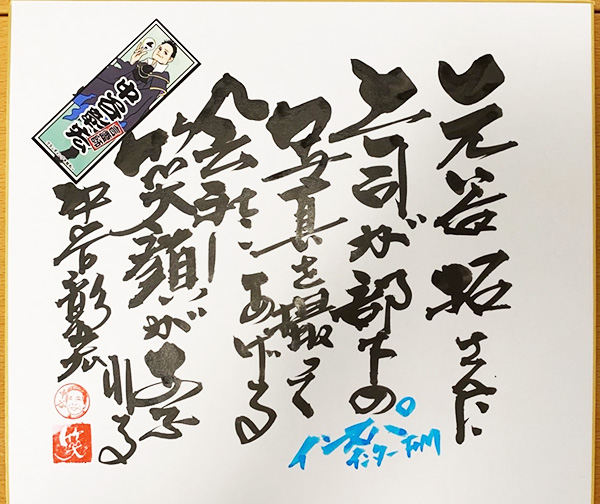 元谷拓さんに
上司が部下の
写真を撮って
あげる
会社に
笑顔があふれる
中谷彰宏
笑
中谷彰宏
インターFM